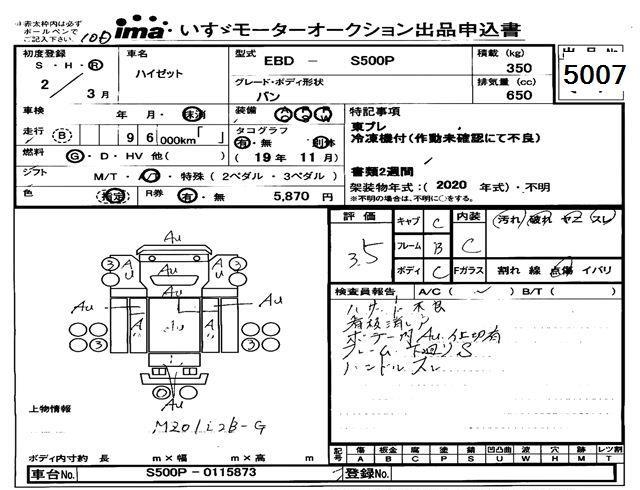 ※赤太枠内は必ず
ボールペンで
ご記入下さい。
ima いすゞモーターオークション出品申込書
初度登録
S・H・R
2 3月
車名
ハイゼット
型式
EBD - S500P
グレード・ボディ形状
バン
積載 (kg)
350
排気量 (cc)
650
出品No
5007
車検 年 月・抹消
装備 A/C P/S P/W
走行 B 96,000km
タコグラフ
有・無 別体
(19年 11月)
燃料 G・D・HV 他( )
シフト M/T・A/T・特殊(2ペダル・3ペダル)
色 指定 R券 有・無 5,870 円
特記事項
東プレ
冷凍機付(作動未確認にて不良)
書類2週間
架装物年式:(2020 年式)・不明
※不明の場合は、不明に○をする。
評価 3.5
キャブ C
フレーム B
ボディ C
内装 C
汚れ・破れ・ヤニ・スレ
Fガラス 割れ 線 点傷 イバリ
検査員報告 A/C( ) B/T( )
ハサート不良
看板消し
ボデー内Au仕切有
フレーム下廻りS
ハンドルスレ
Au
3 A/U A/U 3
Au Au
3 A A 3
Au
Au
上物情報
MZ01i2B-G
ボディ内寸約 長 m×幅 m×高 m
車台No. S500P-0115873
登録No.
記号 傷 板金 腐 塗 錆 凹凸曲 波 穴 跡 レツ割
A B C P S U W H M T